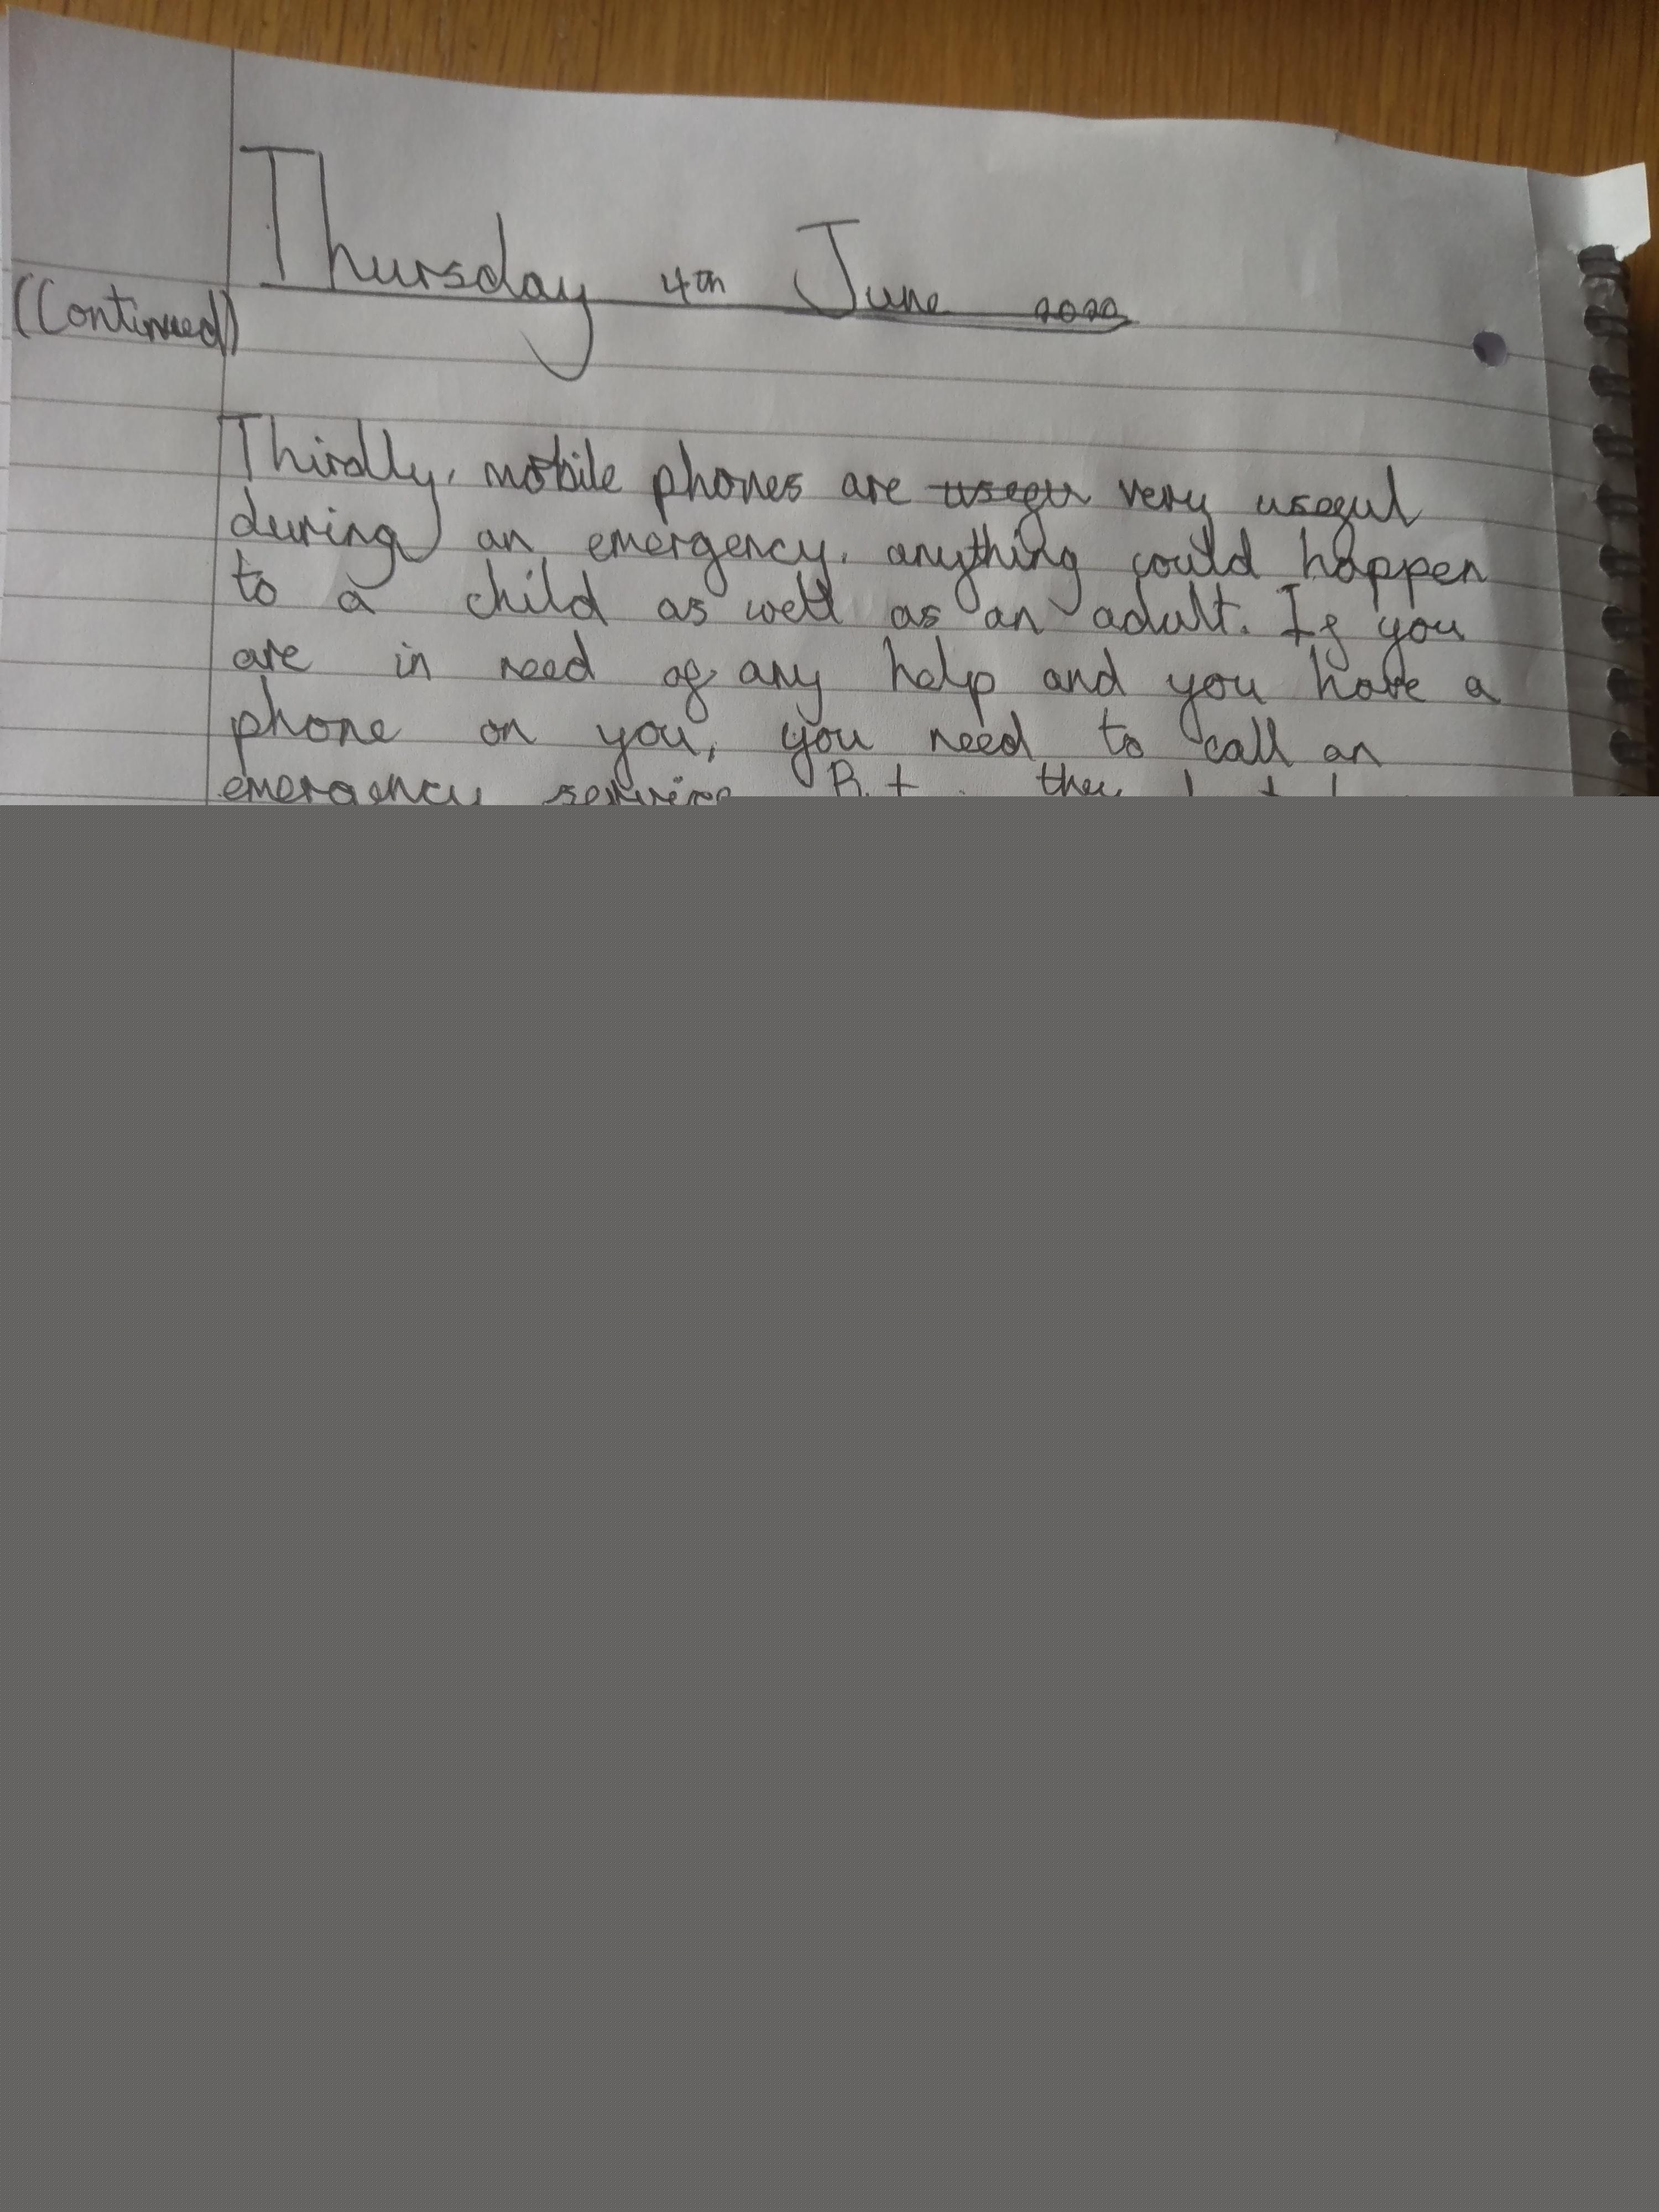 Thursday 4th June 2020
(Continued)
Thirdly, mobile phones are very useful
during an emergency. anything could happen
to a child as well as an adult. If you
are in need of any help and you have a
phone on you, you need to call an
emergency service